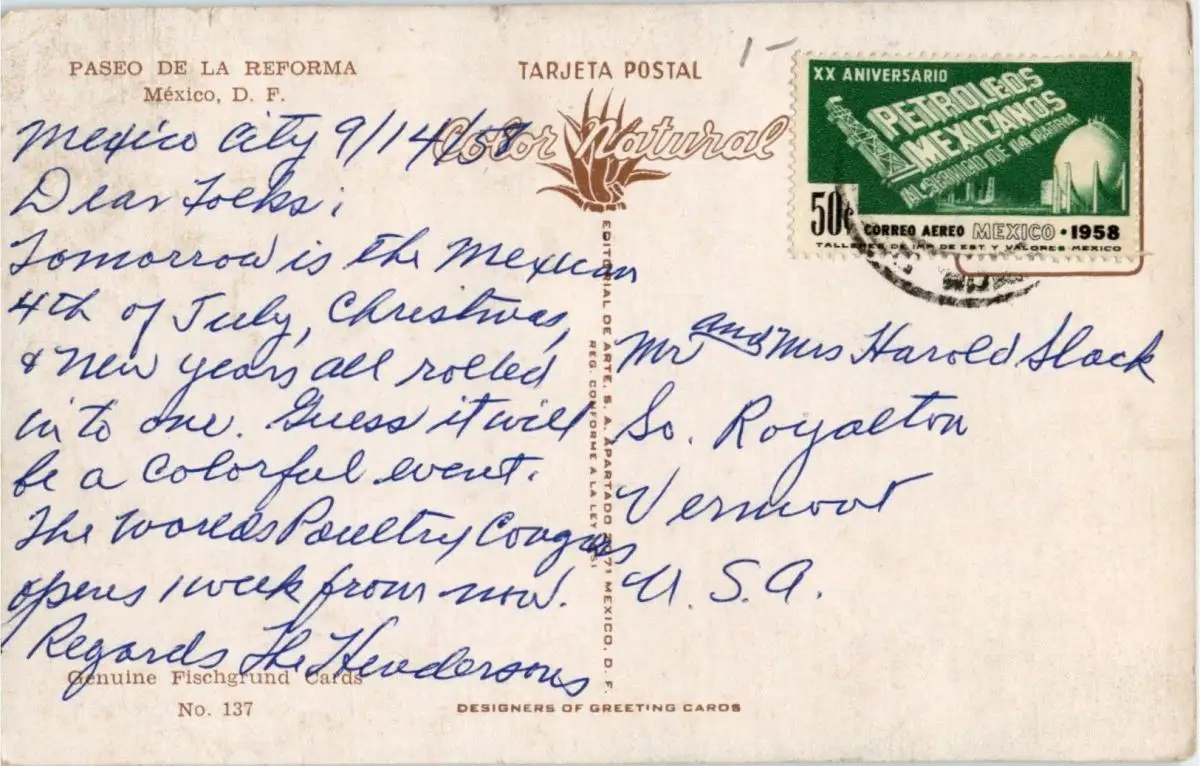 PASEO DE LA REFORMA
México, D. F.
TARJETA POSTAL
1-
Color Natural
Mexico City 9/14/58
Dear Folks;
Tomorrow is the Mexican
4th of July, Christmas,
& New Years all rolled
in to one. Guess it will
be a colorful event.
The Worlds Poultry Congress
opens 1 week from now.
Regards The Hendersons
Genuine Fischgrund Cards
No. 137
EDITORIAL DE ARTE, S. A. APARTADO MEXICO, D. F.
REG. CONFORME A LA LEY
DESIGNERS OF GREETING CARDS
XX ANIVERSARIO
PETROLEOS
MEXICANOS
AL SERVICIO DE LA PATRIA
50c
CORREO AEREO MEXICO • 1958
TALLERES DE IMP. DE EST. Y VALORES-MEXICO
Mr and Mrs Harold Slack
So. Royalton
Vermont
U.S.A.